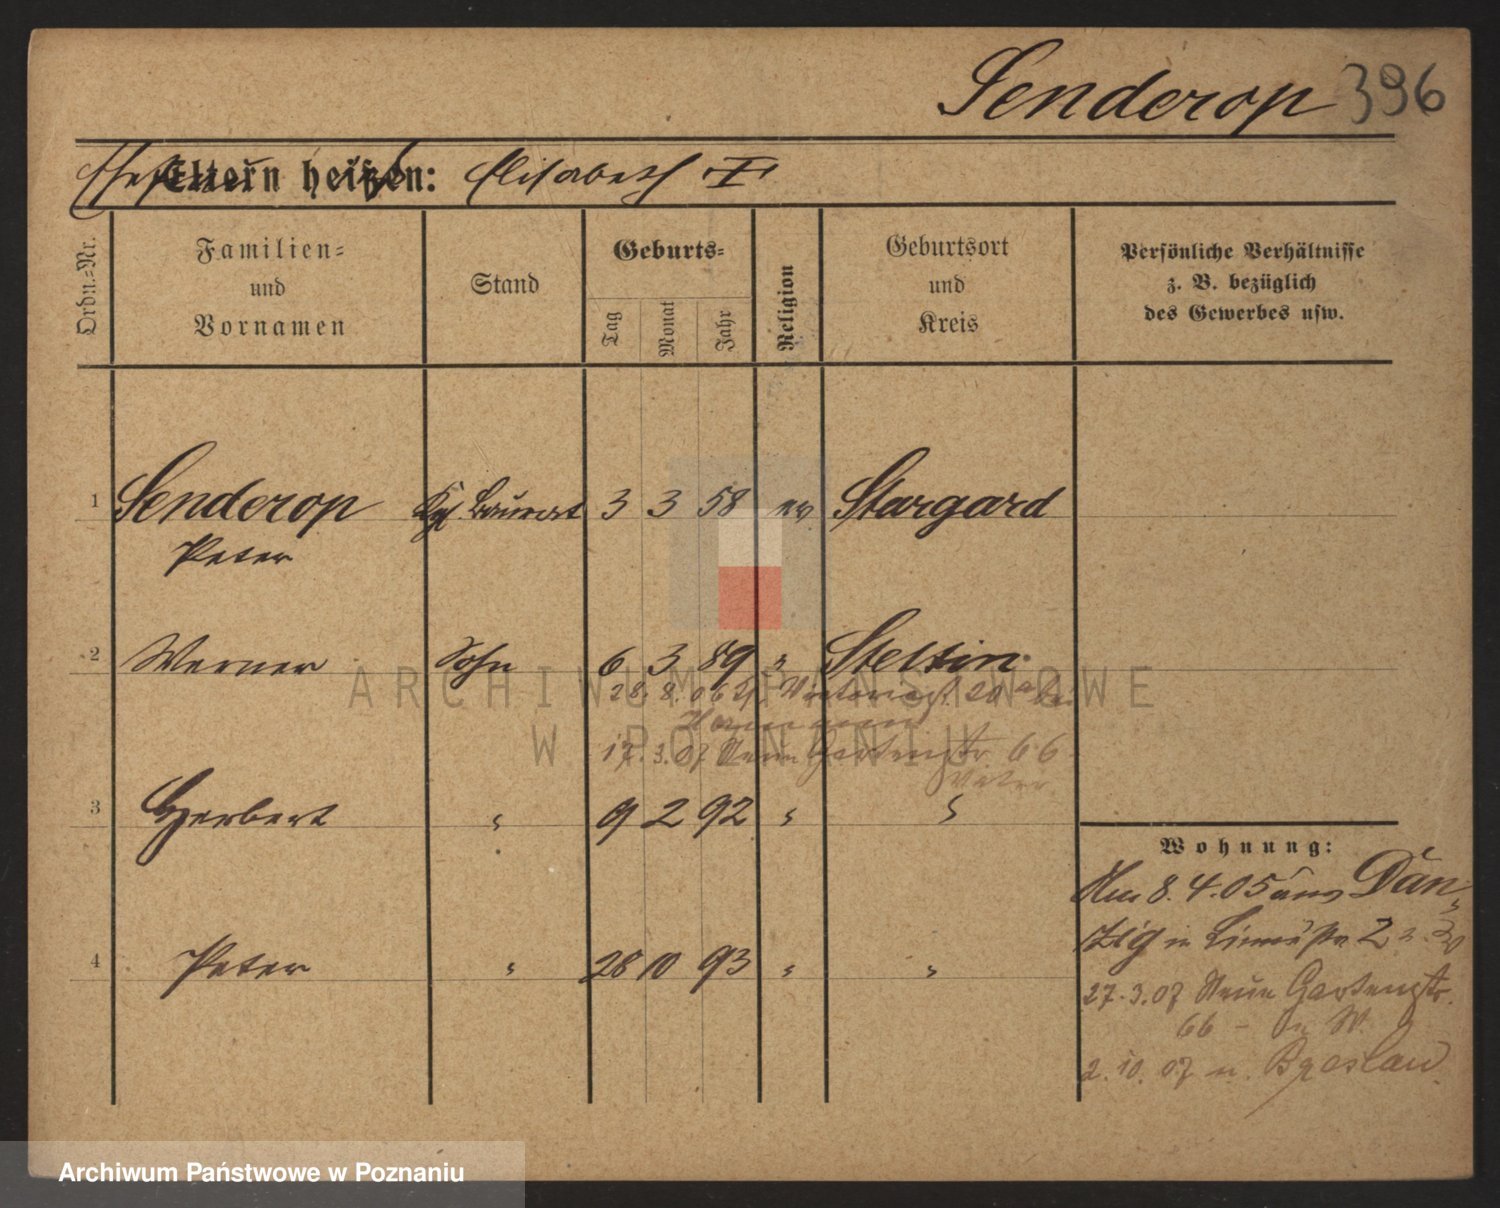 Senderop 396
Eltern heißen: Elisabeth
Ordn.-Nr.
Familien-
und
Vornamen
Stand
Geburts-
Tag
Monat
Jahr
Religion
Geburtsort
und
Kreis
Persönliche Verhältnisse
z. B. bezüglich
des Gewerbes usw.
1 Senderop Kgl. Baurat 3 3 58 ev. Stargard
Peter
2 Werner Sohn 6 3 89 " Stettin
28. 8. 06 20
17. 3. 07 Neue Gartenstr. 66
Vater.
3 Herbert " 9 2 92 " "
4 Peter " 28 10 93 " "
Wohnung:
8. 4. 05 aus Dan-
zig in 2
27. 3. 07 Neue Gartenstr.
66 - W
2. 10. 07 n. Breslau.
ARCHIWUM PAŃSTWOWE
W POZNANIU
Archiwum Państwowe w Poznaniu